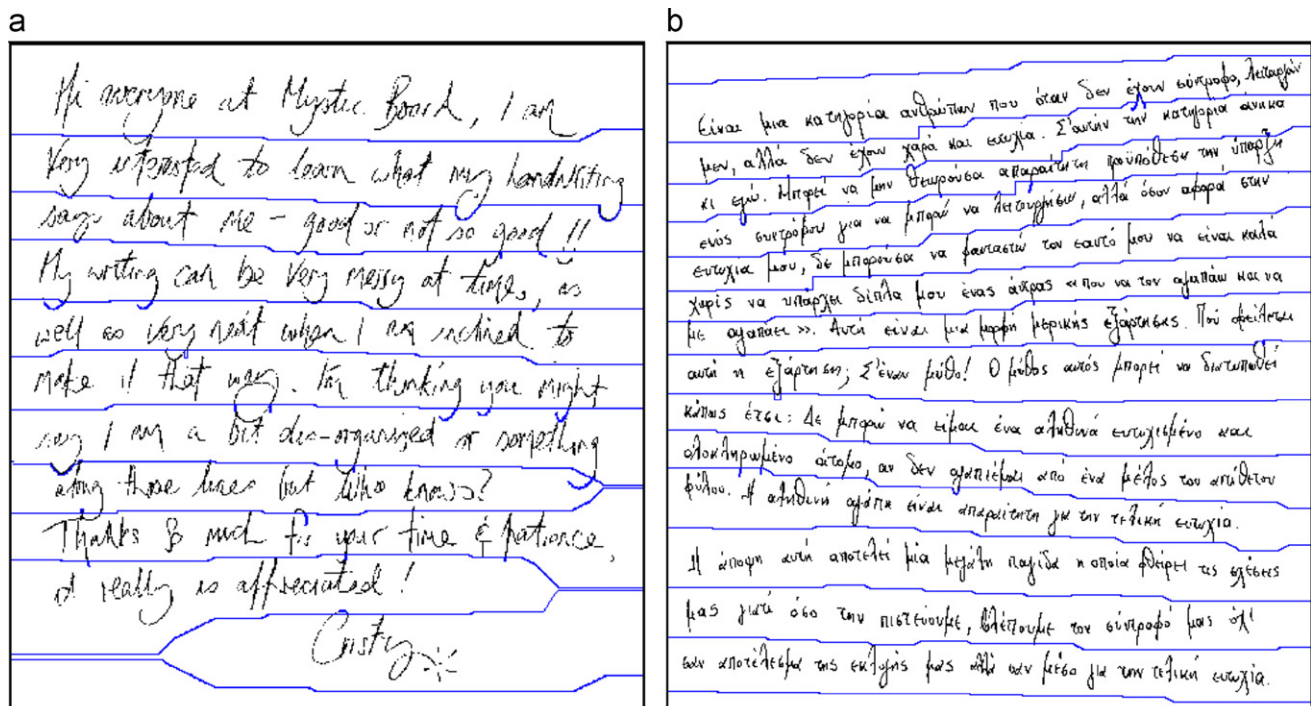 a
Hi everyone at Mystic Board, I am
Very interested to learn what my handwriting
says about me - good or not so good!!
My writing can be very messy at times, as
well as very neat when I am inclined to
make it that way. I'm thinking you might
say I am a bit dis-organized or something
along those lines but who knows?
Thanks so much for your time & patience,
it really is appreciated!
Cristy
b
Είναι μια κατηγορία ανθρώπων που όταν δεν έχουν σύντροφο, λειτουργούν
μεν, αλλά δεν έχουν χαρά και ευτυχία. Σ'αυτήν την κατηγορία άνηκα
κι εγώ. Μπορεί να μην θεωρούσα απαραίτητη προϋπόθεση την ύπαρξη
ενός συντρόφου για να μπορώ να λειτουργήσω, αλλά όσον αφορά στην
ευτυχία μου, δε μπορούσα να φανταστώ τον εαυτό μου να είναι καλά
χωρίς να υπάρχει δίπλα μου ένας άντρας «που να τον αγαπάω και να
με αγαπάει». Αυτή είναι μια μορφή μερικής εξάρτησης. Πού οφείλεται
αυτή η εξάρτηση; Σ'έναν μύθο! Ο μύθος αυτός μπορεί να διατυπωθεί
κάπως έτσι: Δε μπορώ να είμαι ένα αληθινά ευτυχισμένο και
ολοκληρωμένο άτομο, αν δεν αγαπιέμαι από ένα μέλος του αντίθετου
φύλου. Η αληθινή αγάπη είναι απαραίτητη για την τελική ευτυχία.
Η άποψη αυτή αποτελεί μία μεγάλη παγίδα η οποία φθείρει τις σχέσεις
μας γιατί όσο την πιστεύουμε, βλέπουμε τον σύντροφό μας όχι
σαν αποτέλεσμα της εκλογής μας αλλά σαν μέσο για την τελική ευτυχία.